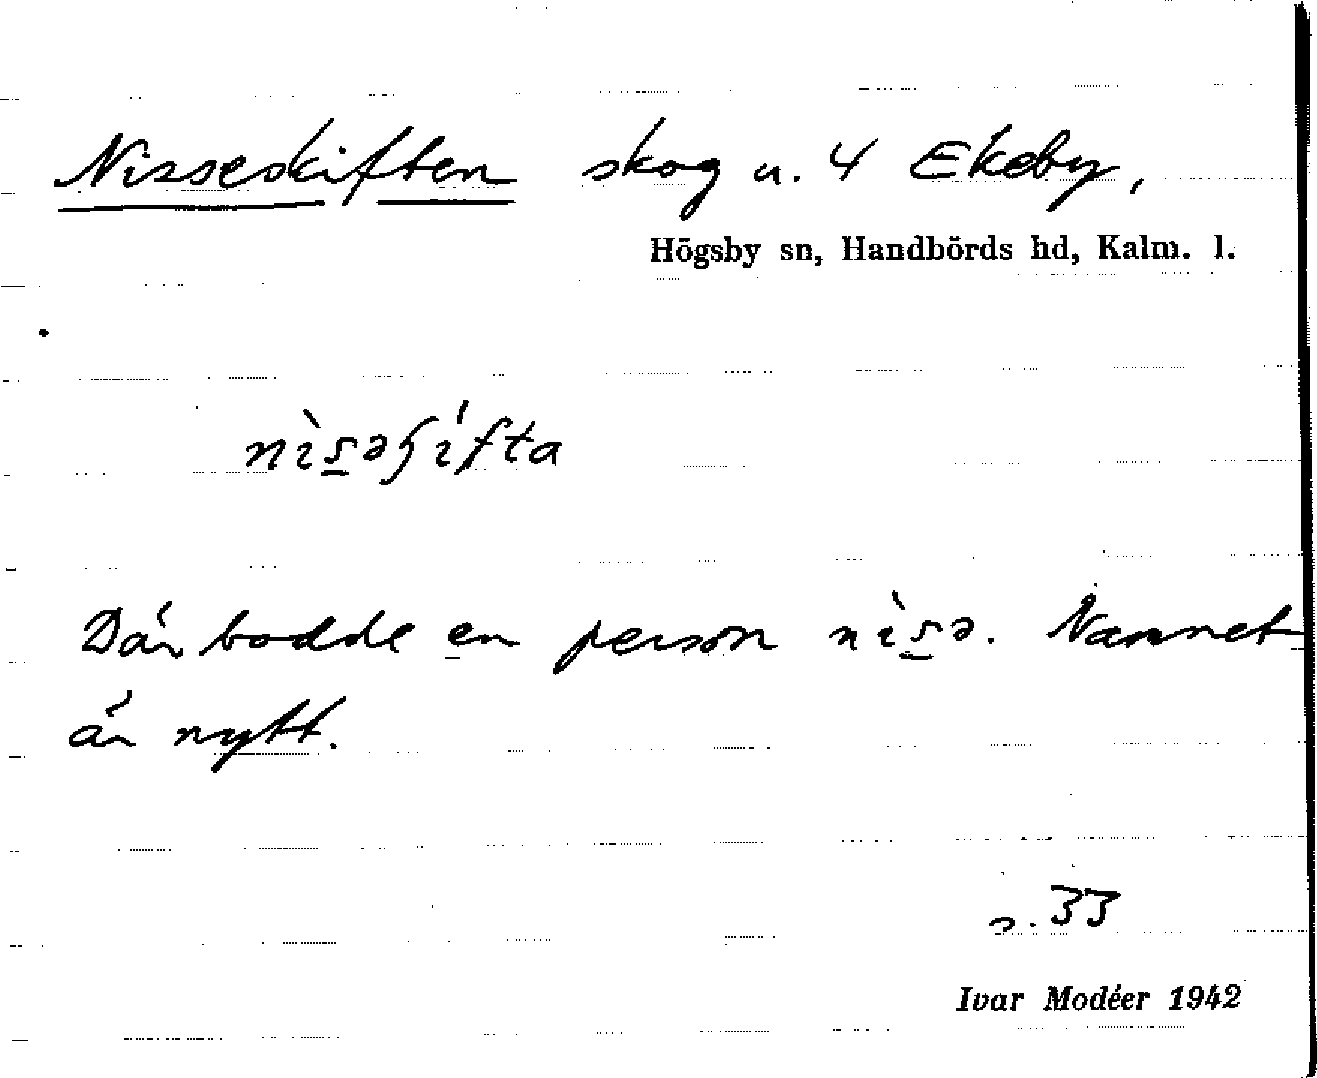 Nisseskiften skog u. 4 Ekeby,
Högsby sn, Handbörds hd, Kalm. l.
Där bodde en person nìs̲ə. Namnet
är nytt.
s. 33
Ivar Modéer 1942